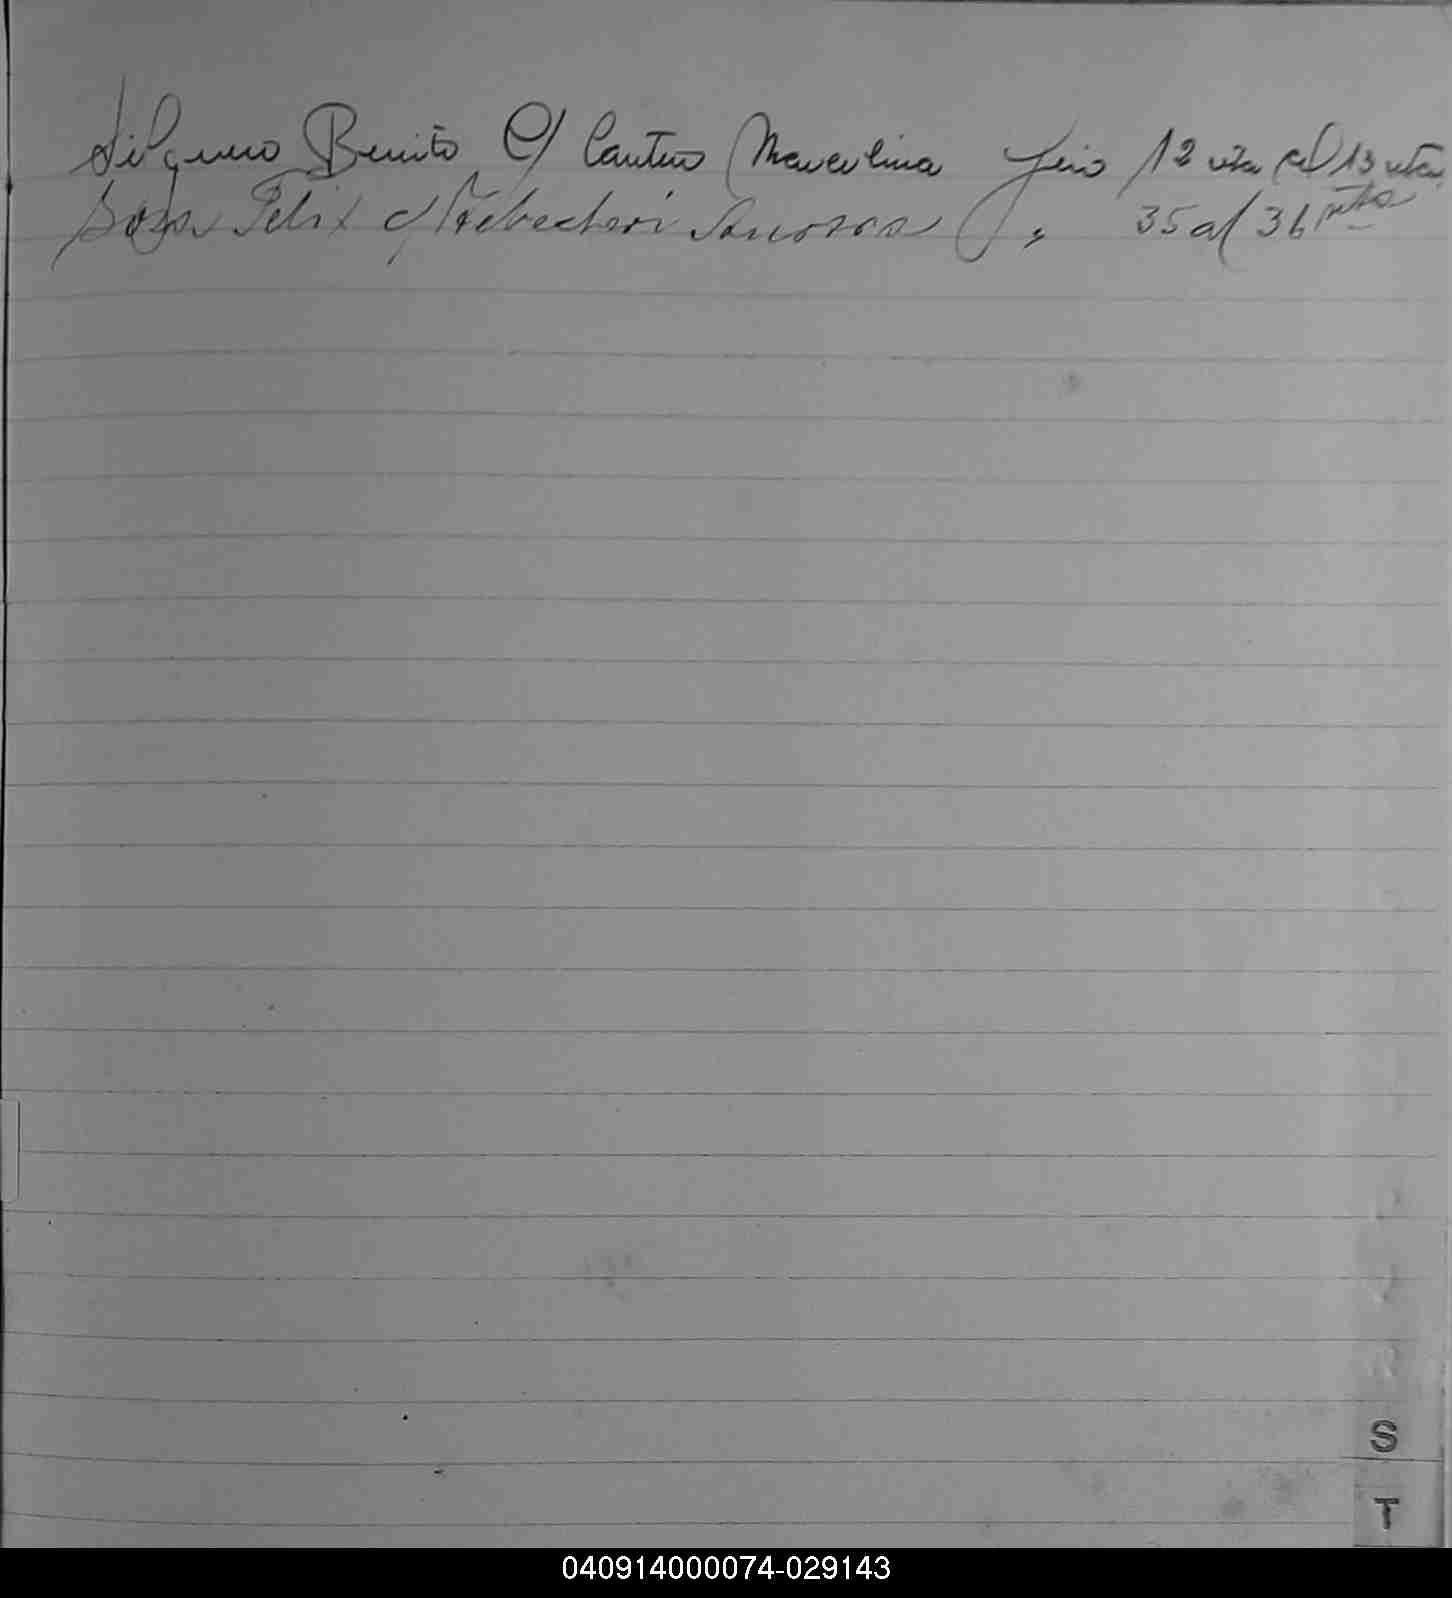 Silguero Benito C/ Cantero Marcelina Feio 12 vta al 13 vta
Sosa Felix c/ Sanossa " 35 al 36 vta
S
T
040914000074-029143